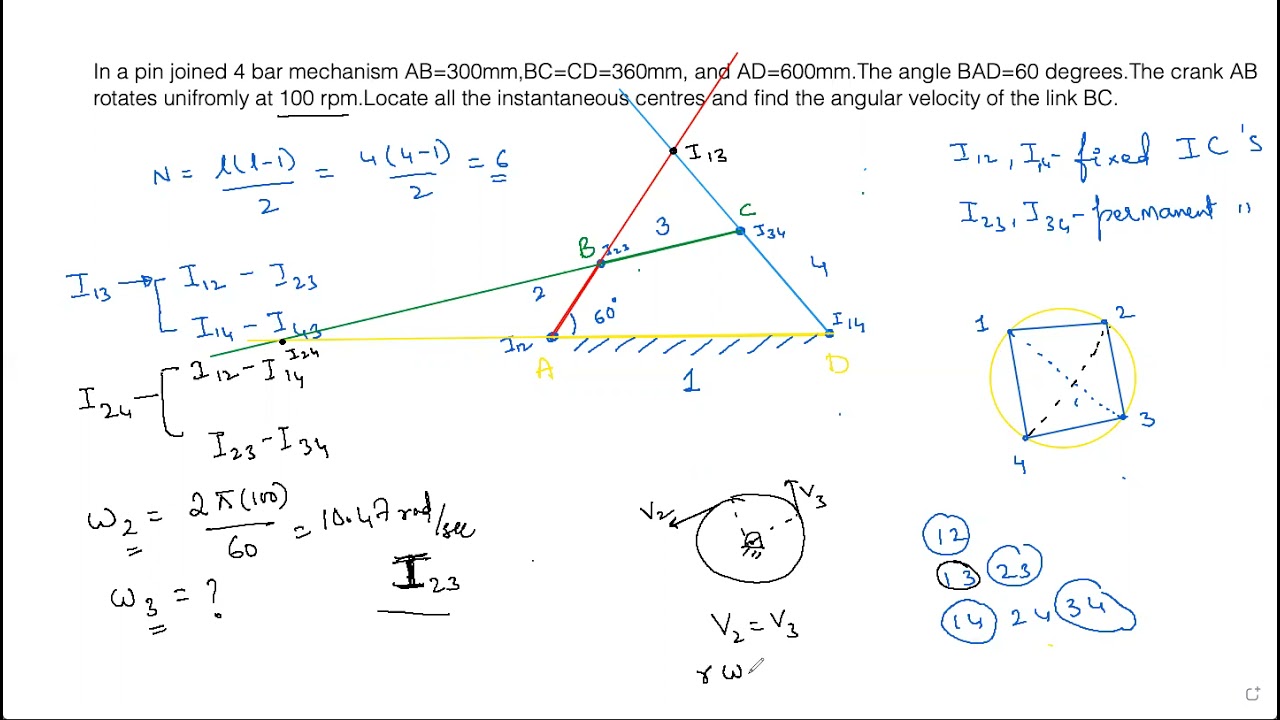 In a pin joined 4 bar mechanism AB=300mm,BC=CD=360mm, and AD=600mm.The angle BAD=60 degrees.The crank AB
rotates unifromly at 100 rpm.Locate all the instantaneous centres and find the angular velocity of the link BC.
N = l(l-1)/2 = 4(4-1)/2 = 6
I13
I12, I14- fixed IC's
I23, I34 - permanent "
C
I34
3
B
I23
4
2
60°
I13 → I12 - I23
I14 - I43
I24
I12
A
I14
D
1
I24 - I12 - I14
I23 - I34
1
2
3
4
ω2 = 2π(100)/60 = 10.47 rad/sec
I23
ω3 = ?
V2
V3
V2 = V3
r ω
12
13 23
14 24 34